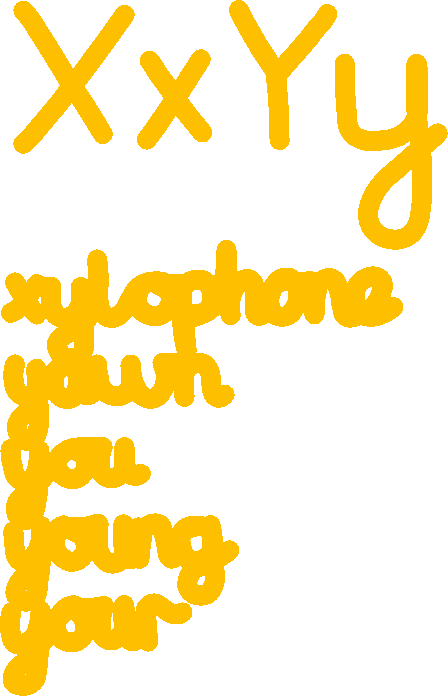 XxYy
xylophone
yawn
you
young
your